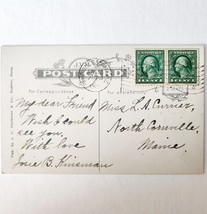 POST CARD
For Correspondence
My dear Friend
Wish I could
see you.
With love
Josie B. Kinsman
Miss L. A. Currier,
North Cornville,
Maine.